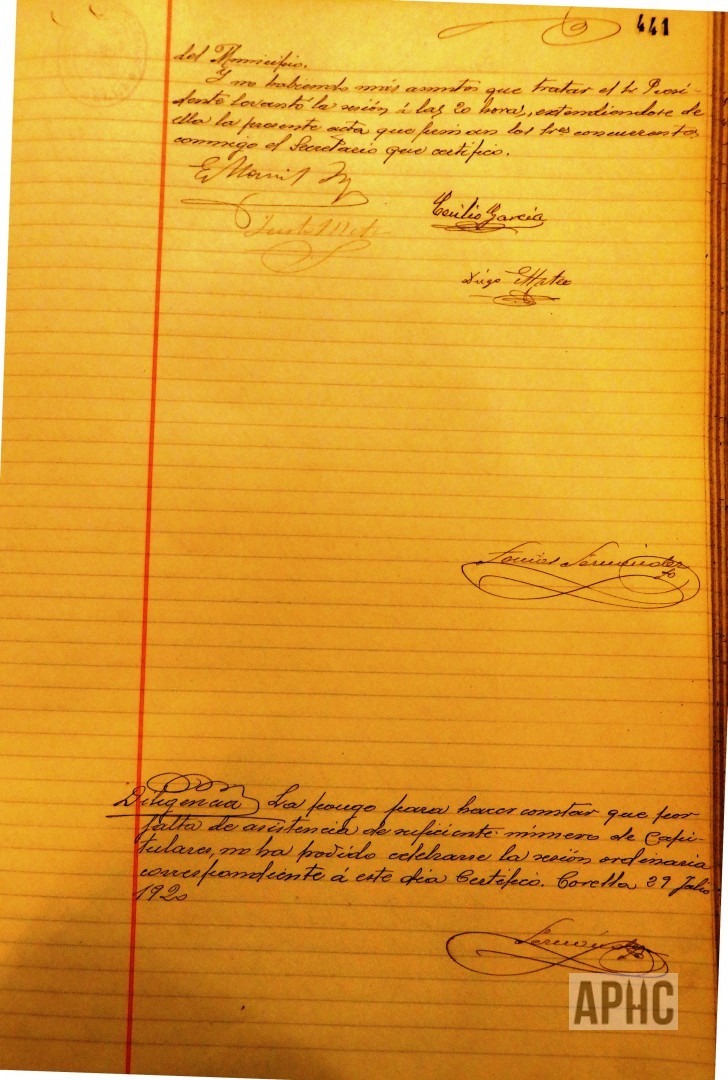 441
del Municipio.
Y no habiendo más asuntos que tratar el Sr Presi-
dente levantó la sesión á las 20 horas, extendiendose de
ella la presente acta que firman los Sres concurrentes
conmigo el Secretario que certifico.
Cecilio García
Diego Mateo
Fernández
Diligencia La pongo para hacer constar que por
falta de asistencia de suficiente número de Capi-
tulares, no ha podido celebrarse la sesión ordinaria
correspondiente á este día Certifico. Corella 29 Julio
1920
Fernández
APHC